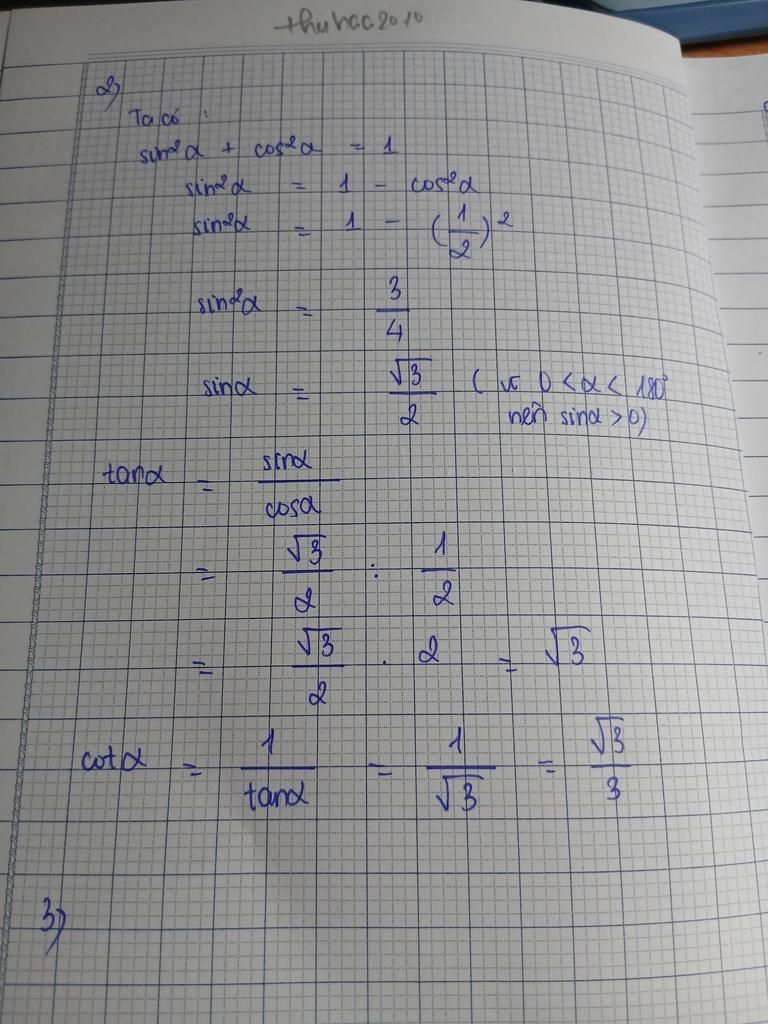 thuhcc2010
2)
Ta có :
sin²α + cos²α = 1
sin²α = 1 - cos²α
sin²α = 1 - (1/2)²
sin²α = 3/4
sinα = √3/2 (vì 0 < α < 180°
nên sinα > 0)
tanα = sinα/cosα
= √3/2 : 1/2
= √3/2 . 2 = √3
cotα = 1/tanα = 1/√3 = √3/3
3)